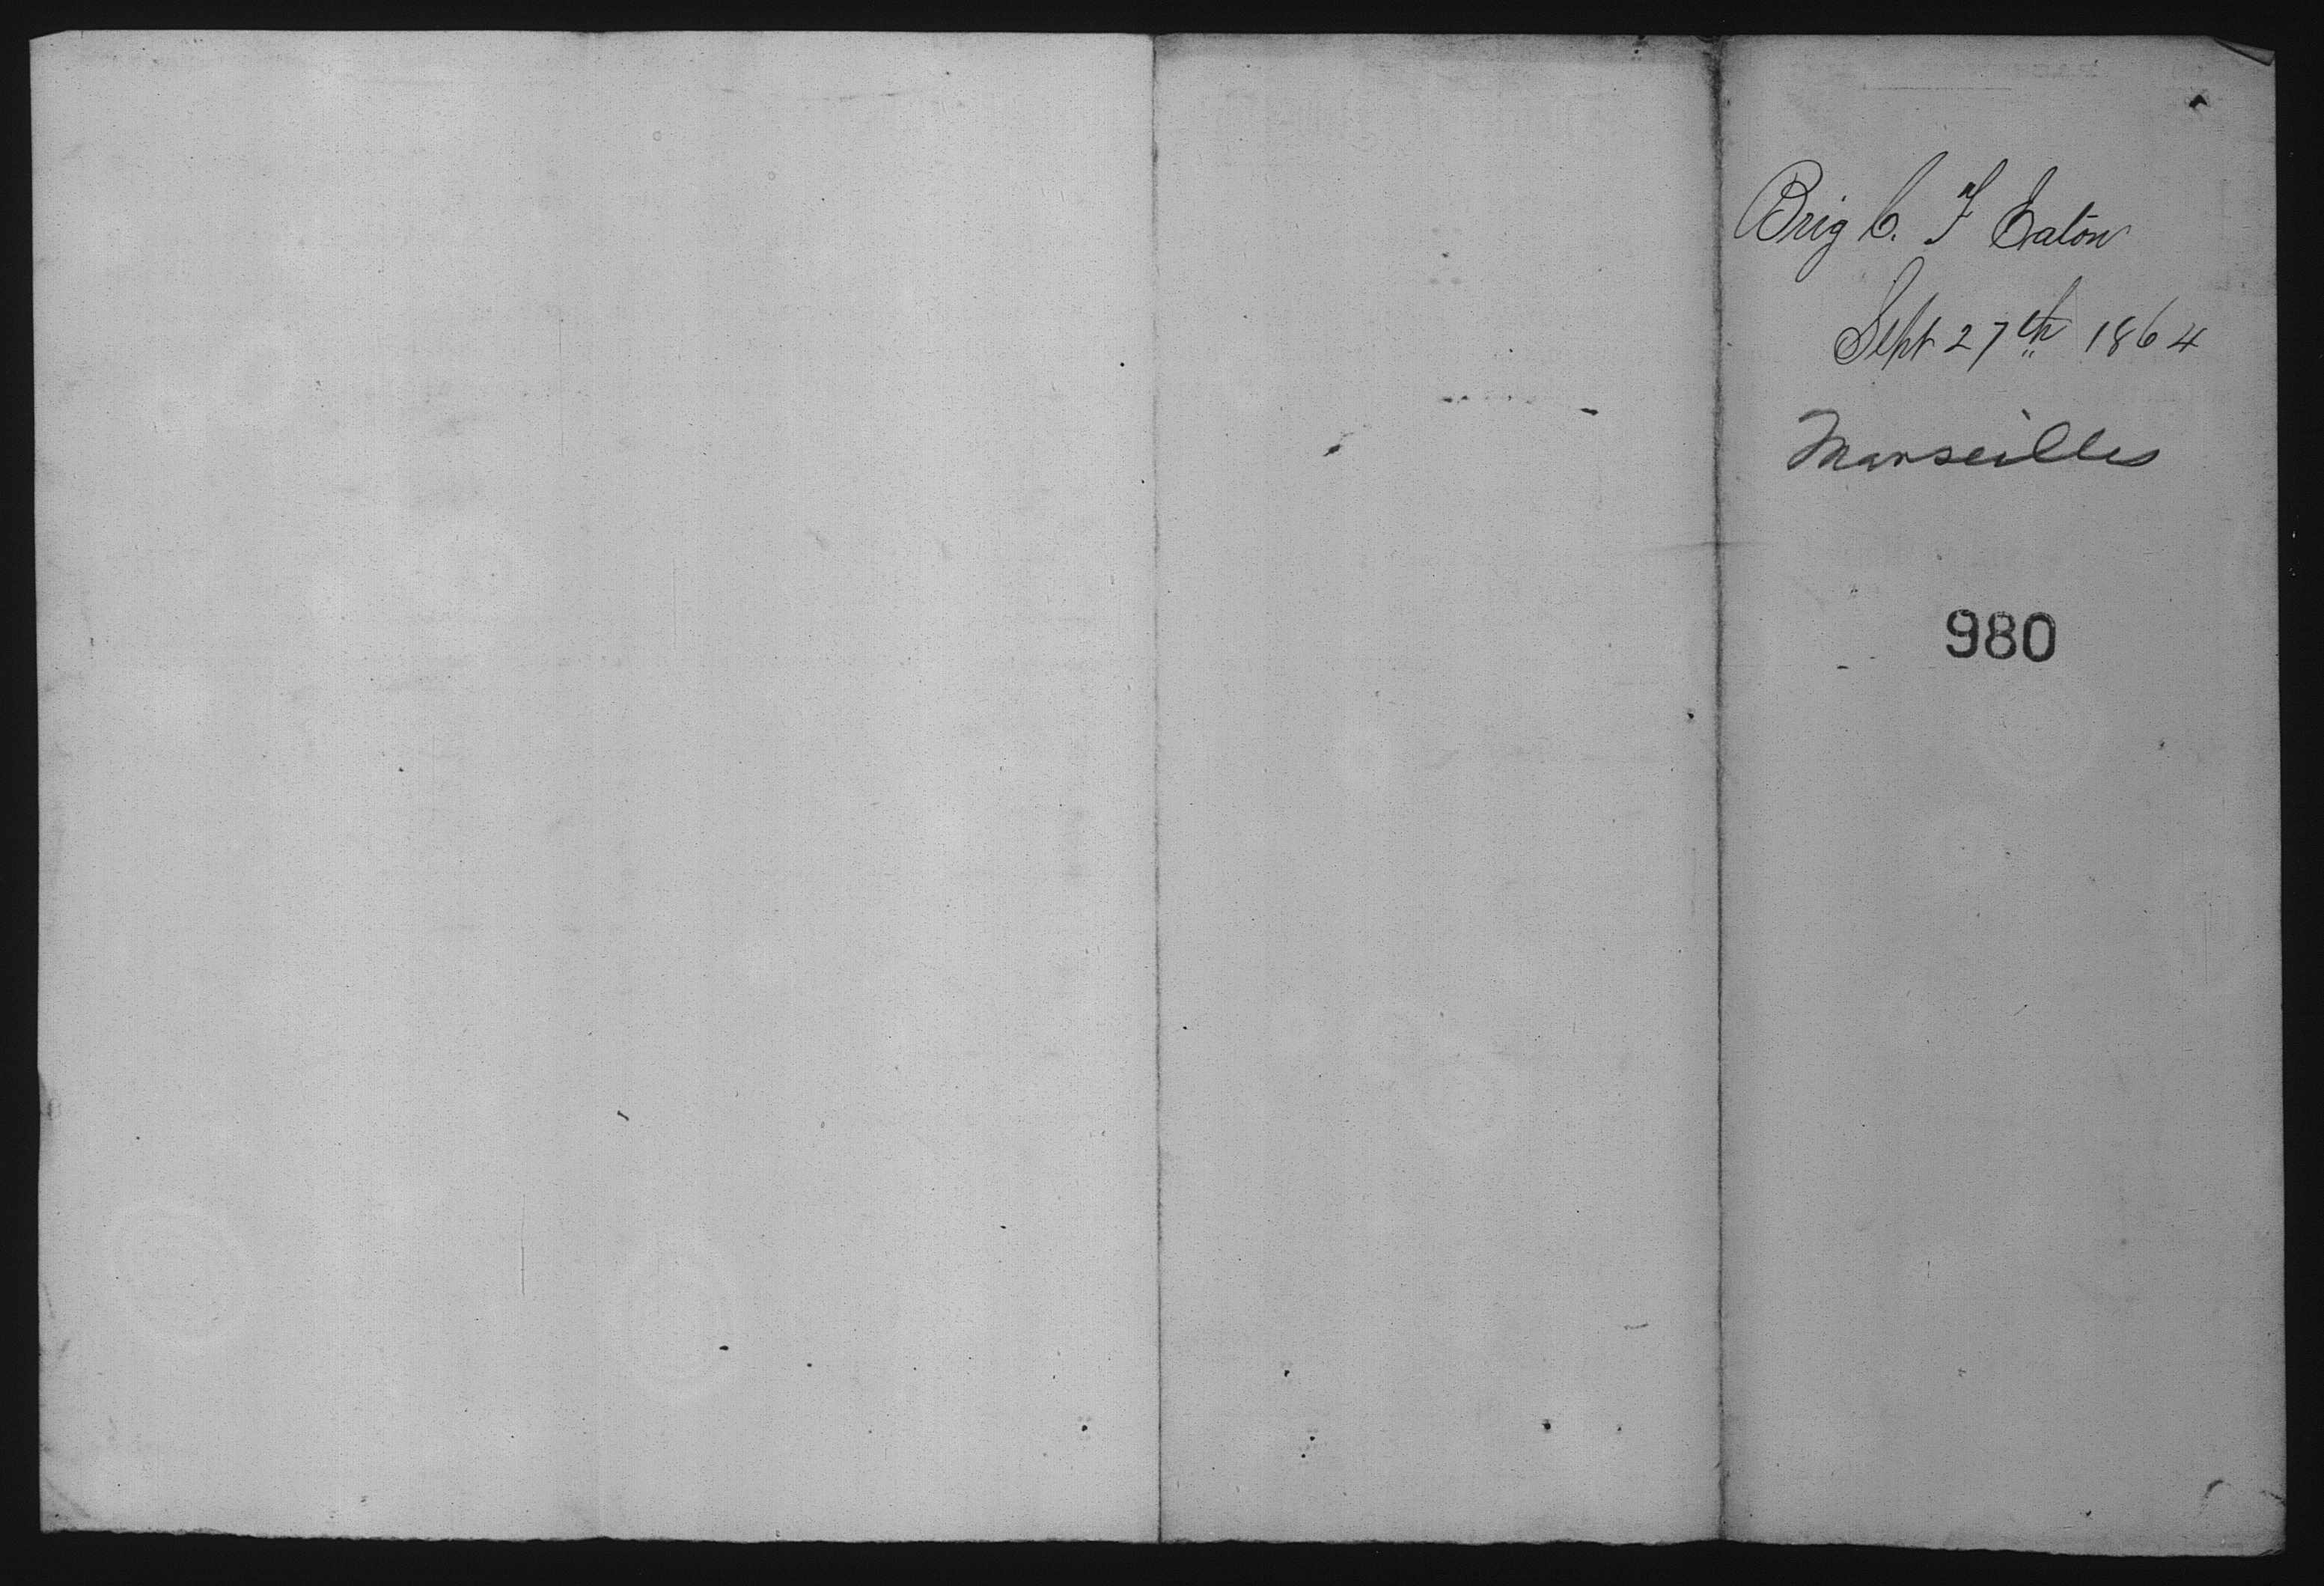 Brig C. F Eaton
Sept 27th 1864
Marseilles
980